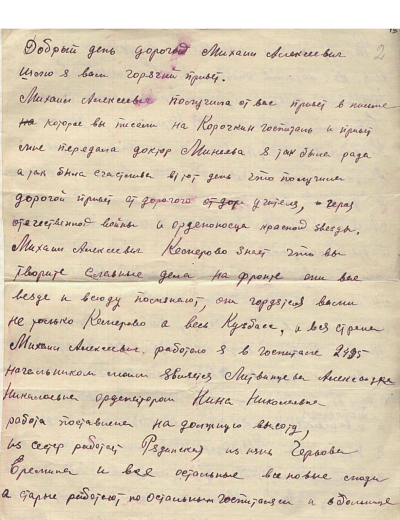 2
Добрый день дорогой Михаил Алексеевич
шлю я вам горячий привет.
Михаил Алексеевич получила от вас привет в письме
которое вы писали на Корочкин госпиталь и привет
мне передала доктор Минеева я так была рада
а так была счастлива в тот день что получила
дорогой привет от дорогого учителя, героя
отечественной войны и орденоносца красной звезды.
Михаил Алексеевич Кемерово знает что вы
творите славные дела на фронте они вас
везде и всюду поминают, они гордятся вами
не только Кемерово а весь Кузбасс, и вся страна
Михаил Алексеевич. работаю я в госпитале 2495
начальником моим является Литванцева Александра
Николаевна ординатором Нина Николаевна
работа поставлена на должную высоту,
из сестер работает из нянь
Еремина и все остальные все новые люди
а старые работают по остальным госпиталям и в больнице